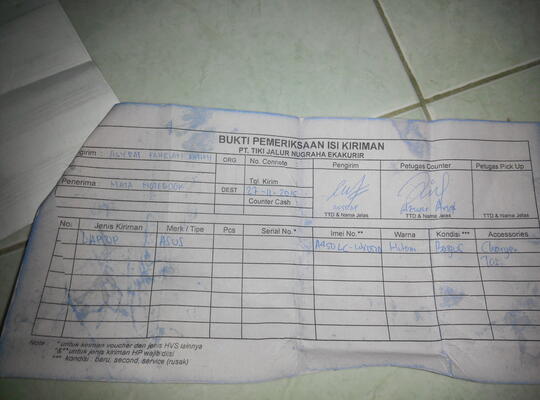 BUKTI PEMERIKSAAN ISI KIRIMAN
PT. TIKI JALUR NUGRAHA EKAKURIR
girim :
ORG No. Connote Pengirim Petugas Counter Petugas Pick Up
Tgl. Kirim
Penerima : MATA NOTEBOOK
DEST 27-11-2015
Counter Cash
TTD & Nama Jelas TTD & Nama Jelas TTD & Nama Jelas
No. Jenis Kiriman Merk / Tipe Pcs Serial No.* Imei No.** Warna Kondisi *** Accessories
LAPTOP ASUS Hitam Bagus Charger
Tas
Note : * untuk kiriman voucher dan jenis HVS lainnya
*&** untuk jenis kiriman HP wajib diisi
*** kondisi : baru, second, service (rusak)